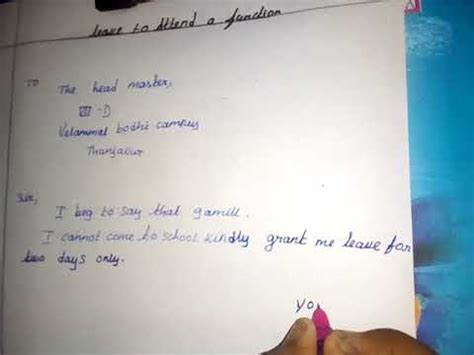 leave to Attend a function
TO
The head master,
VII -D
Velammal bodhi campus
Thanjavur
I beg to say that
I cannot come to school kindly grant me leave for
two days only.
yo